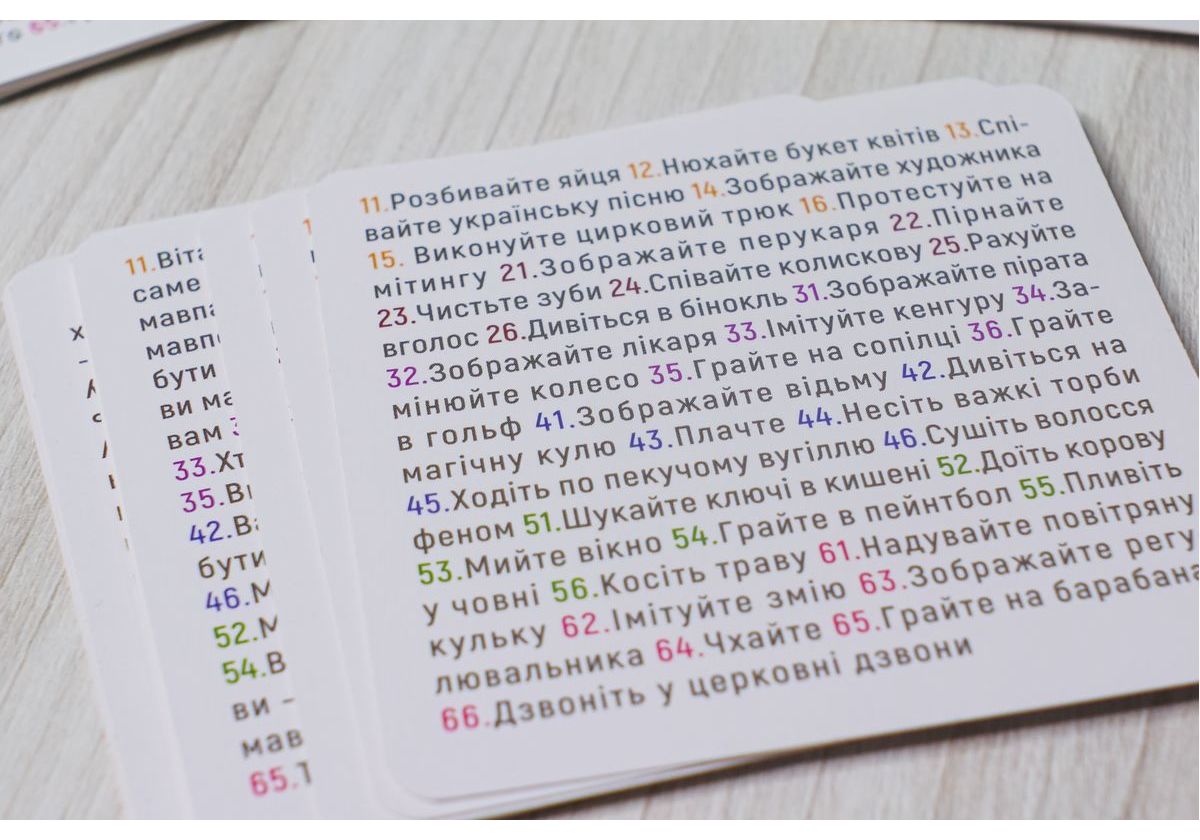 11.Розбивайте яйця 12.Нюхайте букет квітів 13.Спі-
вайте українську пісню 14.Зображайте художника
15. Виконуйте цирковий трюк 16.Протестуйте на
мітингу 21.Зображайте перукаря 22.Пірнайте
23.Чистьте зуби 24.Співайте колискову 25.Рахуйте
вголос 26.Дивіться в бінокль 31.Зображайте пірата
32.Зображайте лікаря 33.Імітуйте кенгуру 34.За-
мінюйте колесо 35.Грайте на сопілці 36.Грайте
в гольф 41.Зображайте відьму 42.Дивіться на
магічну кулю 43.Плачте 44.Несіть важкі торби
45.Ходіть по пекучому вугіллю 46.Сушіть волосся
феном 51.Шукайте ключі в кишені 52.Доїть корову
53.Мийте вікно 54.Грайте в пейнтбол 55.Пливіть
у човні 56.Косіть траву 61.Надувайте повітряну
кульку 62.Імітуйте змію 63.Зображайте регу
лювальника 64.Чхайте 65.Грайте на барабана
66.Дзвоніть у церковні дзвони
11.Віта
саме
мавп
мавп
бути
ви ма
вам
33.Хт
35.Ви
42.Ва
бути
46.М
52.М
54.В
ви –
мав
65.Т